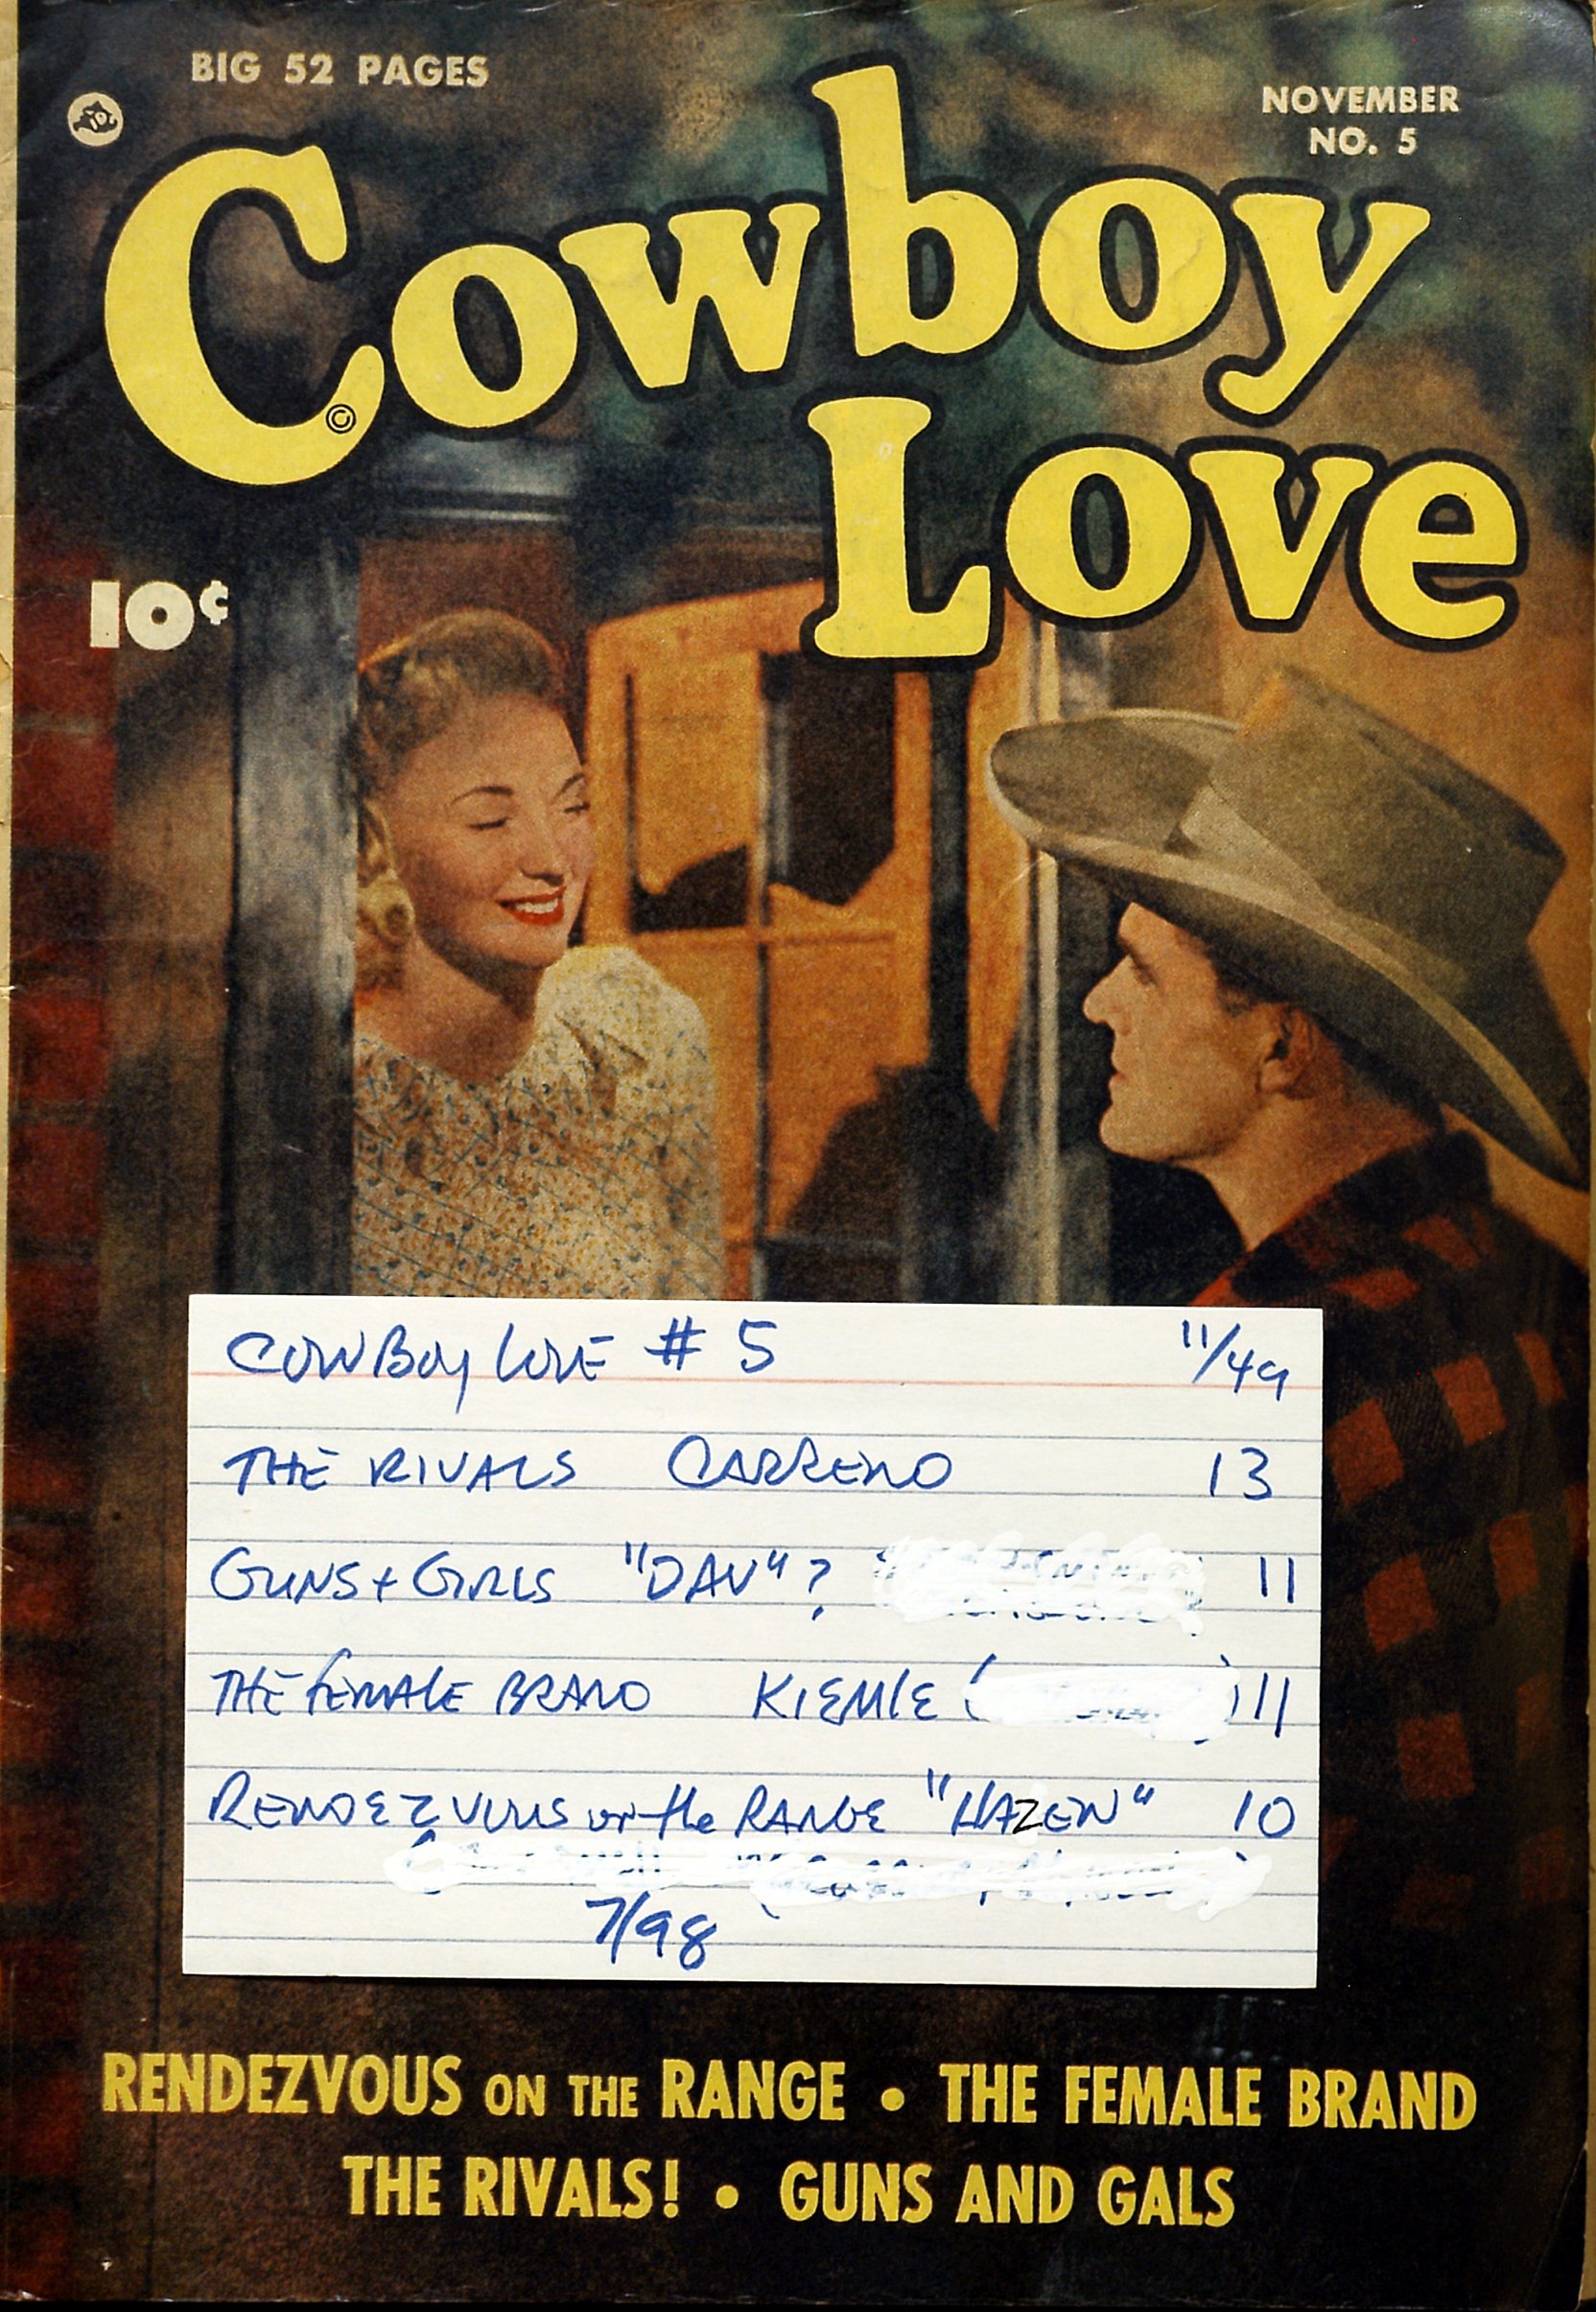 BIG 52 PAGES
NOVEMBER
NO. 5
Cowboy
©
Love
10¢
COWBOY LOVE # 5 11/49
THE RIVALS CARRENO 13
GUNS + GIRLS "DAV"? 11
THE FEMALE BRAND KIEMLE ( ) 11
RENDEZVOUS on the RANGE "HAZEN" 10
7/98
RENDEZVOUS ON THE RANGE • THE FEMALE BRAND
THE RIVALS! • GUNS AND GALS